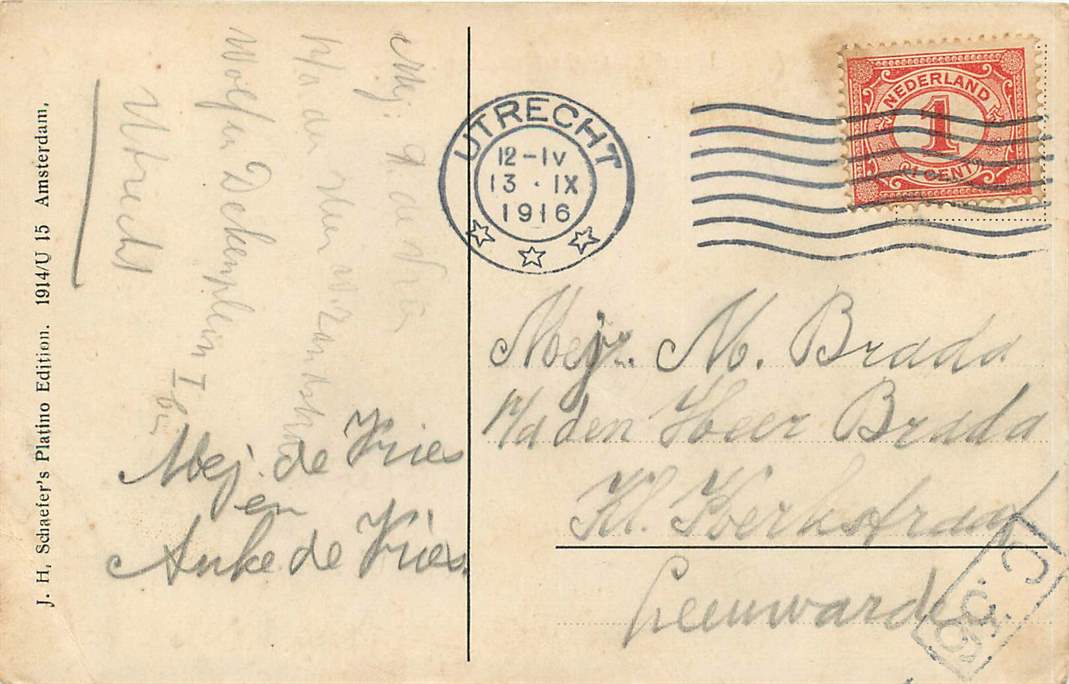 J. H. Schaefer's Platino Edition. 1914/U 15 Amsterdam.
Mej. de Vries
Wolf en Dekenplein I
Utrecht
Mej. de Vries
en
Anke de Vries
UTRECHT
12-IV
13 · IX
1916
NEDERLAND
1
CENT
Mej. M. Brada
p/a den Heer Brada
Kl. Kerkstraat
Leeuwarden